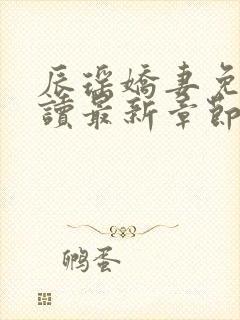 辰瑶嬌妻免
讀最新章節
鸭蛋